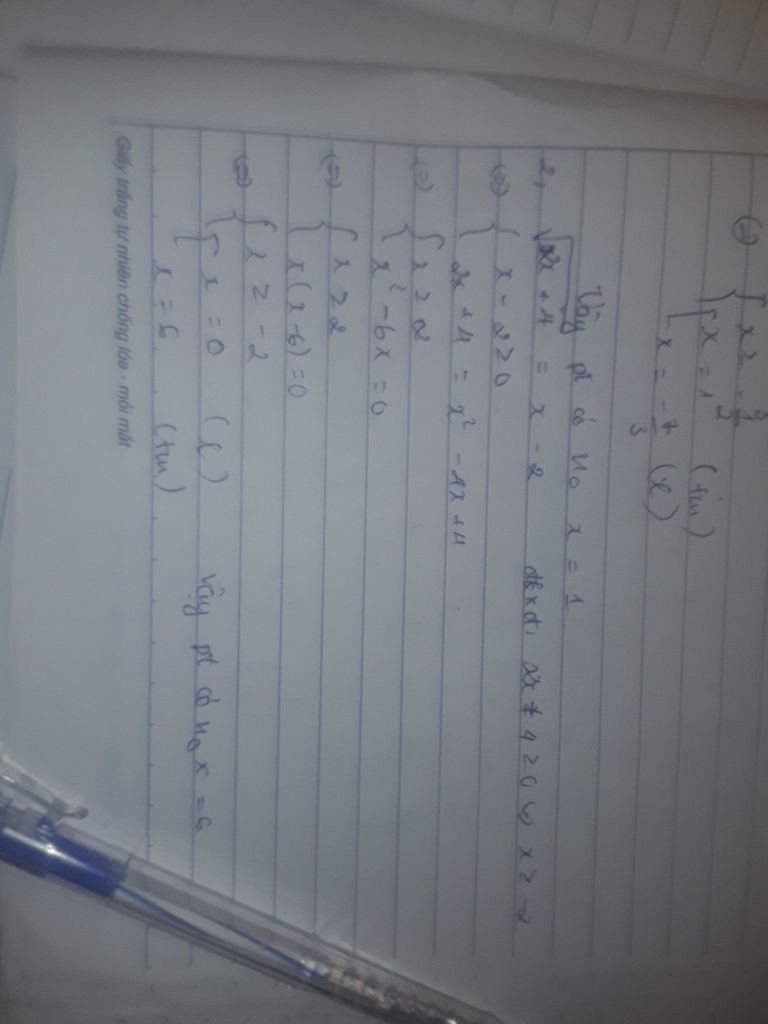 (=) { x ≥ -3/2
[ x = 1 (tm)
x = -7/3 (l)
Vậy pt có n0 x = 1
2, √2x + 4 = x - 2 đkxđ: 2x + 4 ≥ 0 (=) x ≥ -2
(=) { x - 2 ≥ 0
2x + 4 = x² - 4x + 4
(=) { x ≥ 2
x² - 6x = 0
(=) { x ≥ 2
x(x - 6) = 0
(=) { x ≥ -2
[ x = 0 (l) Vậy pt có n0 x = 6
x = 6 (tm)
Giấy trắng tự nhiên chống lóa - mỏi mắt